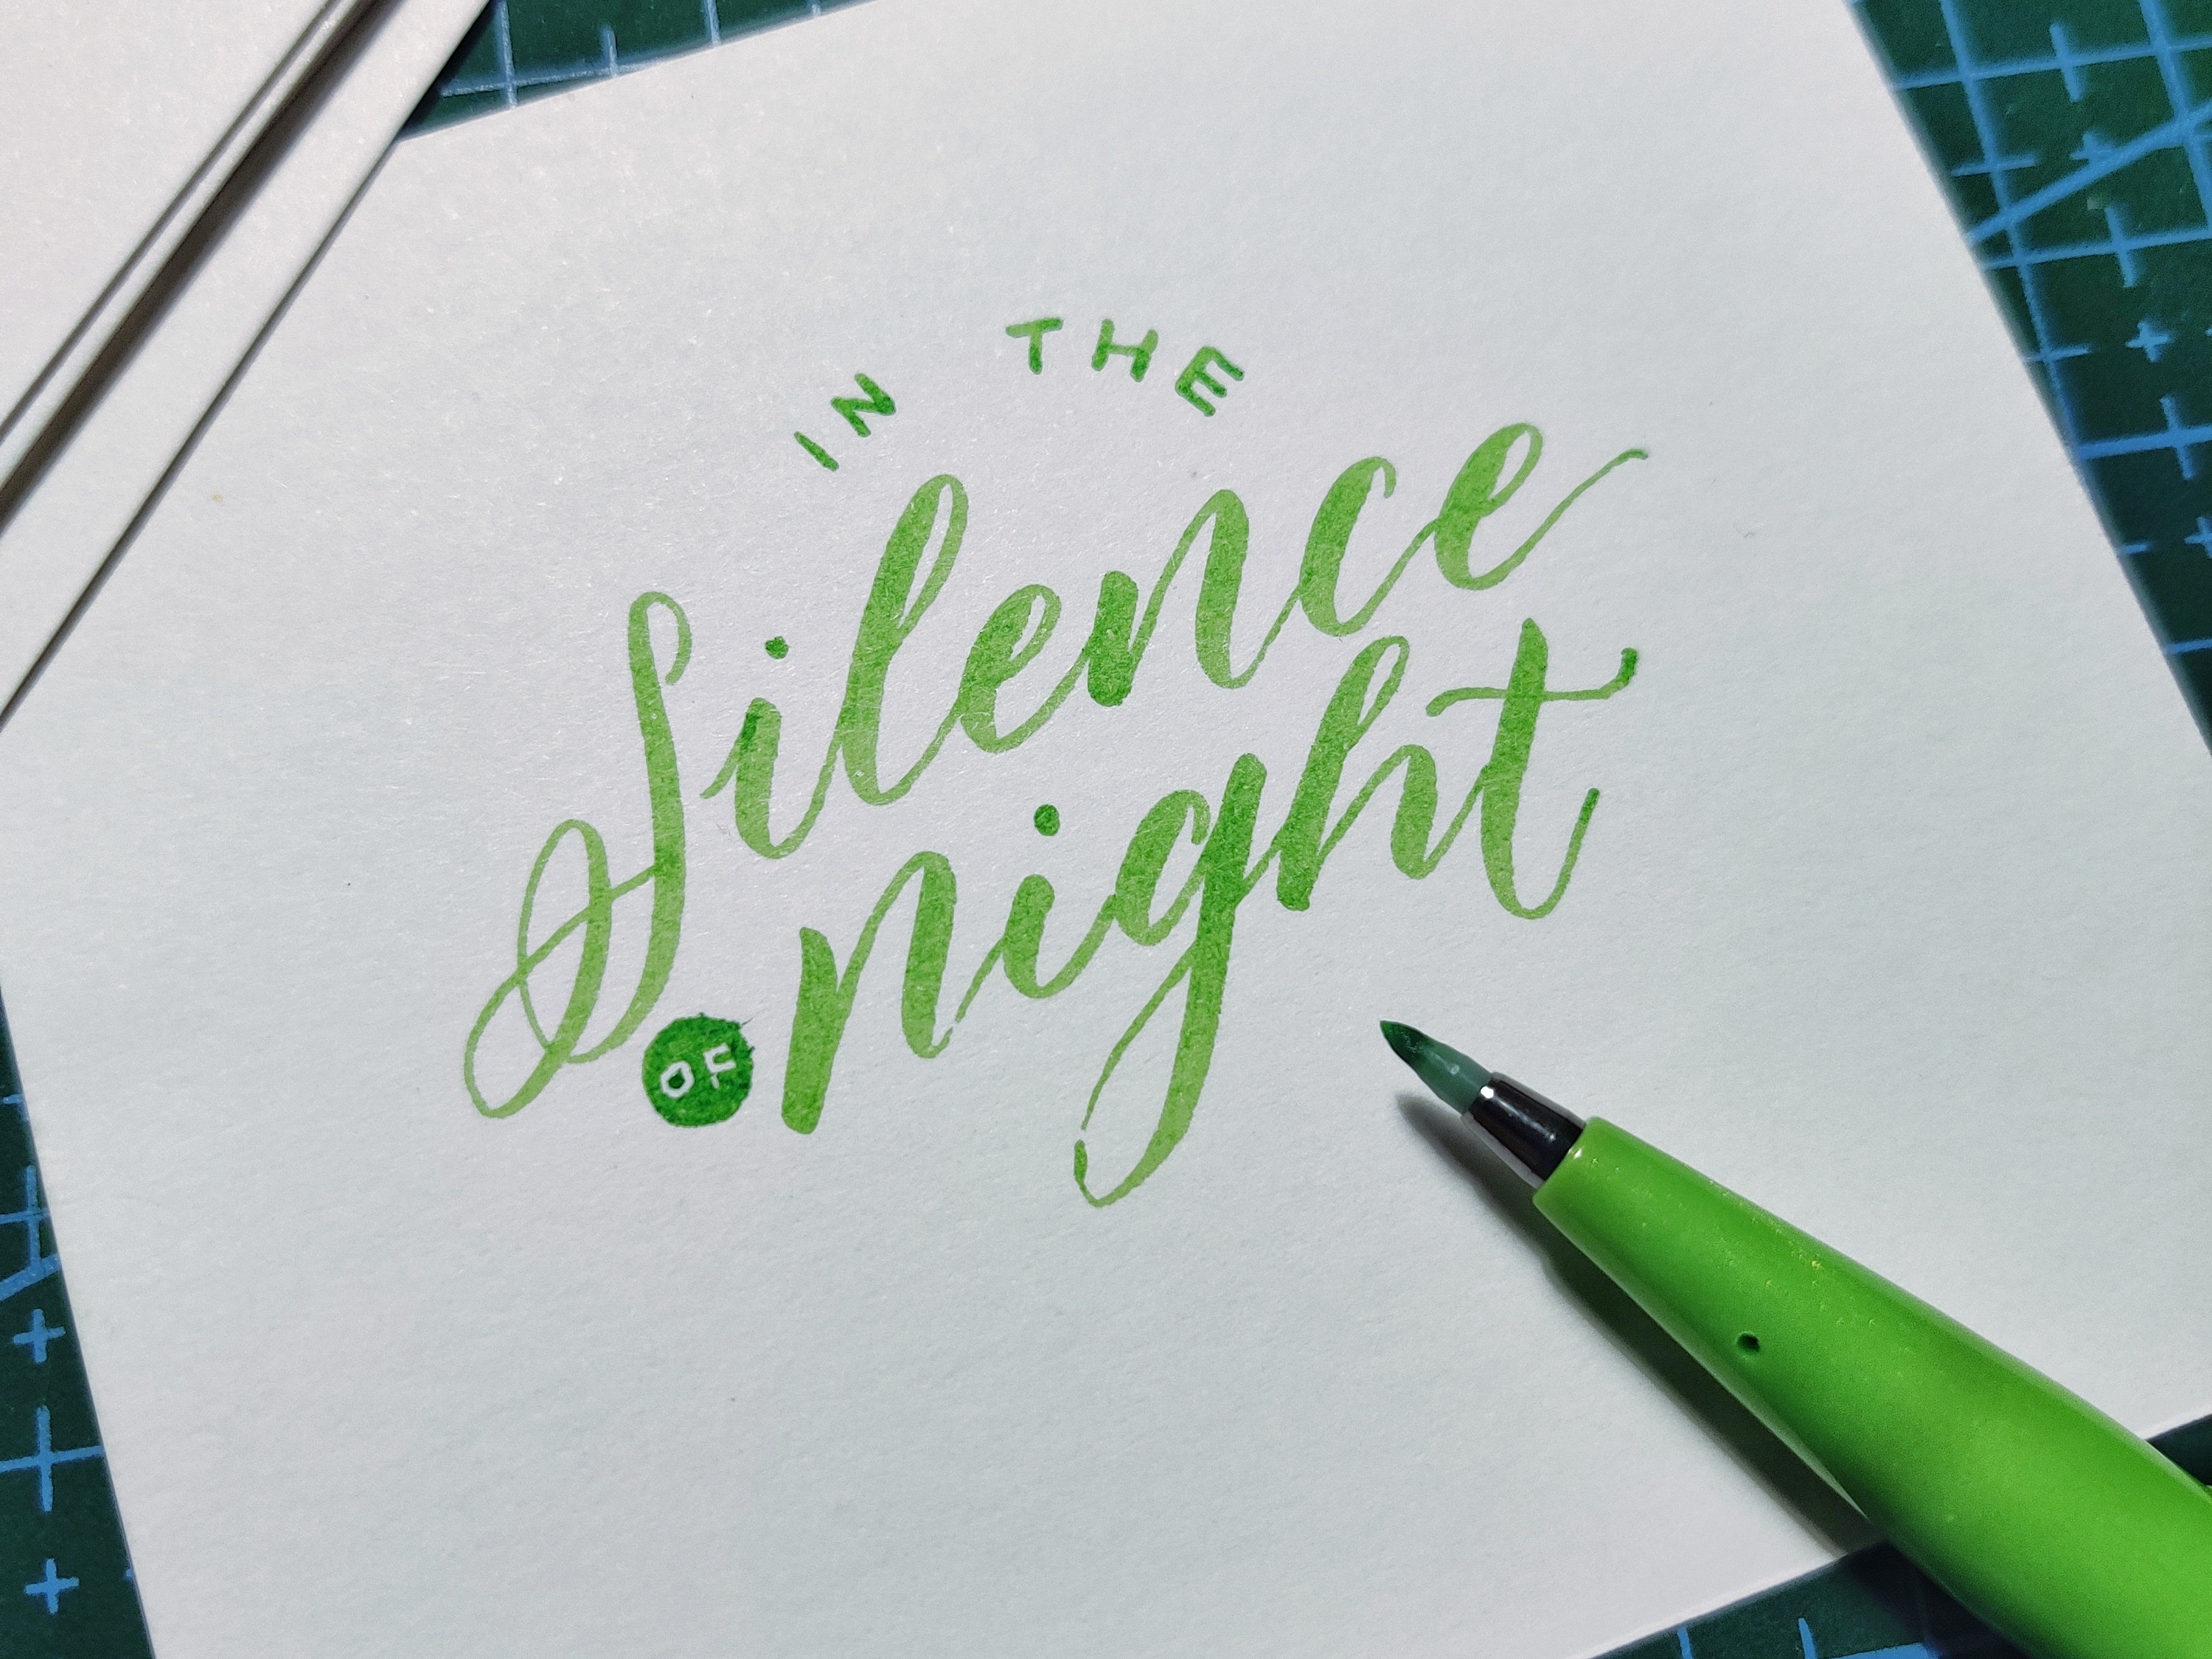 IN THE
Silence
OF night